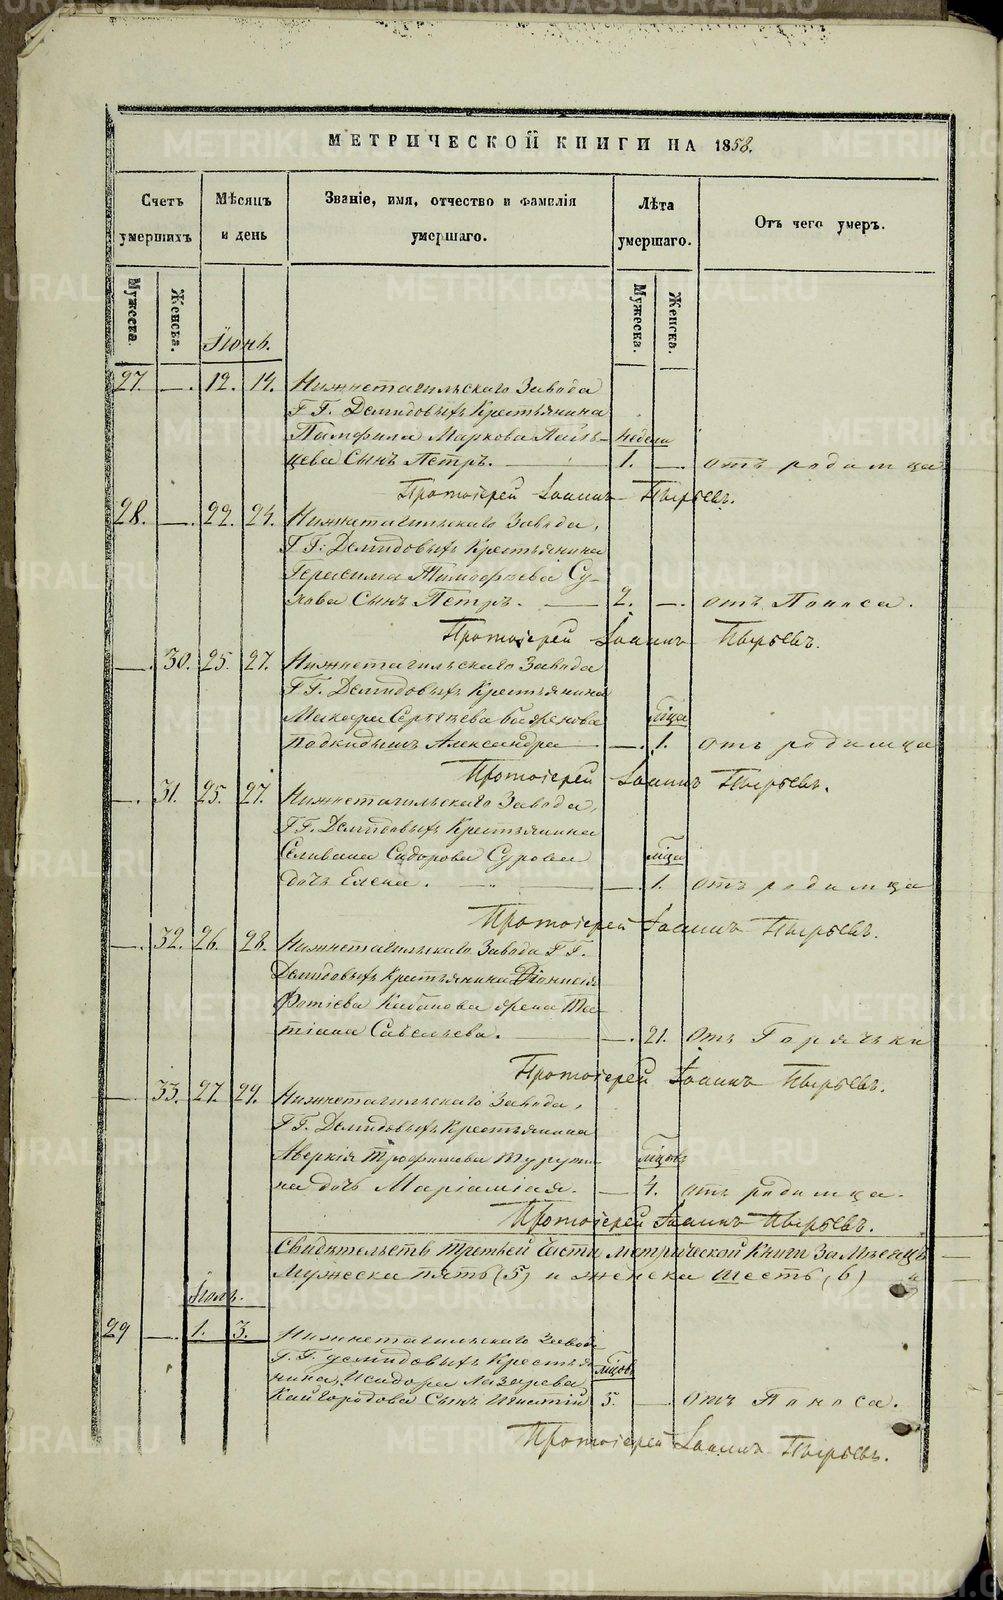 МЕТРИЧЕСКОЙ КНИГИ НА 1858.
Счетъ умершихъ
Мѣсяцъ и день
Званіе, имя, отчество и фамилія умершаго.
Лѣта умершаго.
Отъ чего умеръ.
Мужеска. Женска.
Мужеска. Женска.
Іюнь.
27. — 12. 14. Нижнетагильскаго Завода
Г.Г. Демидовыхъ Крестьянина
Памфила Маркова
недели
цева Сынъ Петръ. — 1. — отъ родимца
Протоіерей Іоаннъ Пырьевъ.
28. — 22. 24. Нижнетагильскаго Завода,
Г.Г. Демидовыхъ Крестьянина
Герасима Тимофѣева Су-
хова Сынъ Петръ. — 2. — отъ Поноса.
Протоіерей Іоаннъ Пырьевъ.
— 30. 25. 27. Нижнетагильскаго Завода
Г.Г. Демидовыхъ Крестьянина
Макара Сергѣева
мѣсца
подкидышъ Александра — 1. отъ родимца
Протоіерей Іоаннъ Пырьевъ.
— 31. 25. 27. Нижнетагильскаго Завода,
Г.Г. Демидовыхъ Крестьянина
Селивана Сидорова Сурова
мѣсца
дочь Елена. — 1. отъ родимца
Протоіерей Іоаннъ Пырьевъ.
— 32. 26. 28. Нижнетагильскаго Завода Г.Г.
Демидовыхъ Крестьянина Діонисія
Фотіева Кабанова жена Та-
тіана Савельева. — 21. отъ Горячки
Протоіерей Іоаннъ Пырьевъ.
— 33. 27. 29. Нижнетагильскаго Завода,
Г.Г. Демидовыхъ Крестьянина
Аверкія Трофимова
на дочь Маріамія. — 4. отъ родимца.
Протоіерей Іоаннъ Пырьевъ.
Свидѣтельств Третьей Части метрической Книги За Мѣсяцъ
Мужеска пять (5) и женска шесть (6)
Іюль.
29 — 1. 3. Нижнетагильскаго Завода
Г.Г. Демидовыхъ Крестья-
нина Исидора Лазарева
Кайгородова Сынъ Игнатій 5. — отъ Поноса.
Протоіерей Іоаннъ Пырьевъ.
METRIKI.GASO-URAL.RU